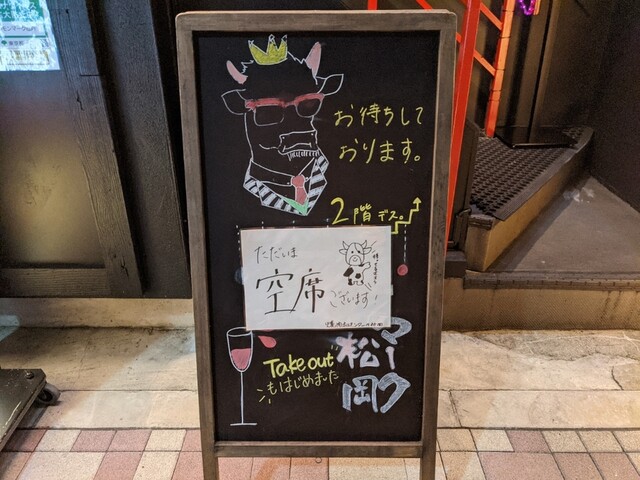 お待ちして
おります。
2階デス。
ただいま
空席
ございます!
Take out
もはじめました
マーク
松岡